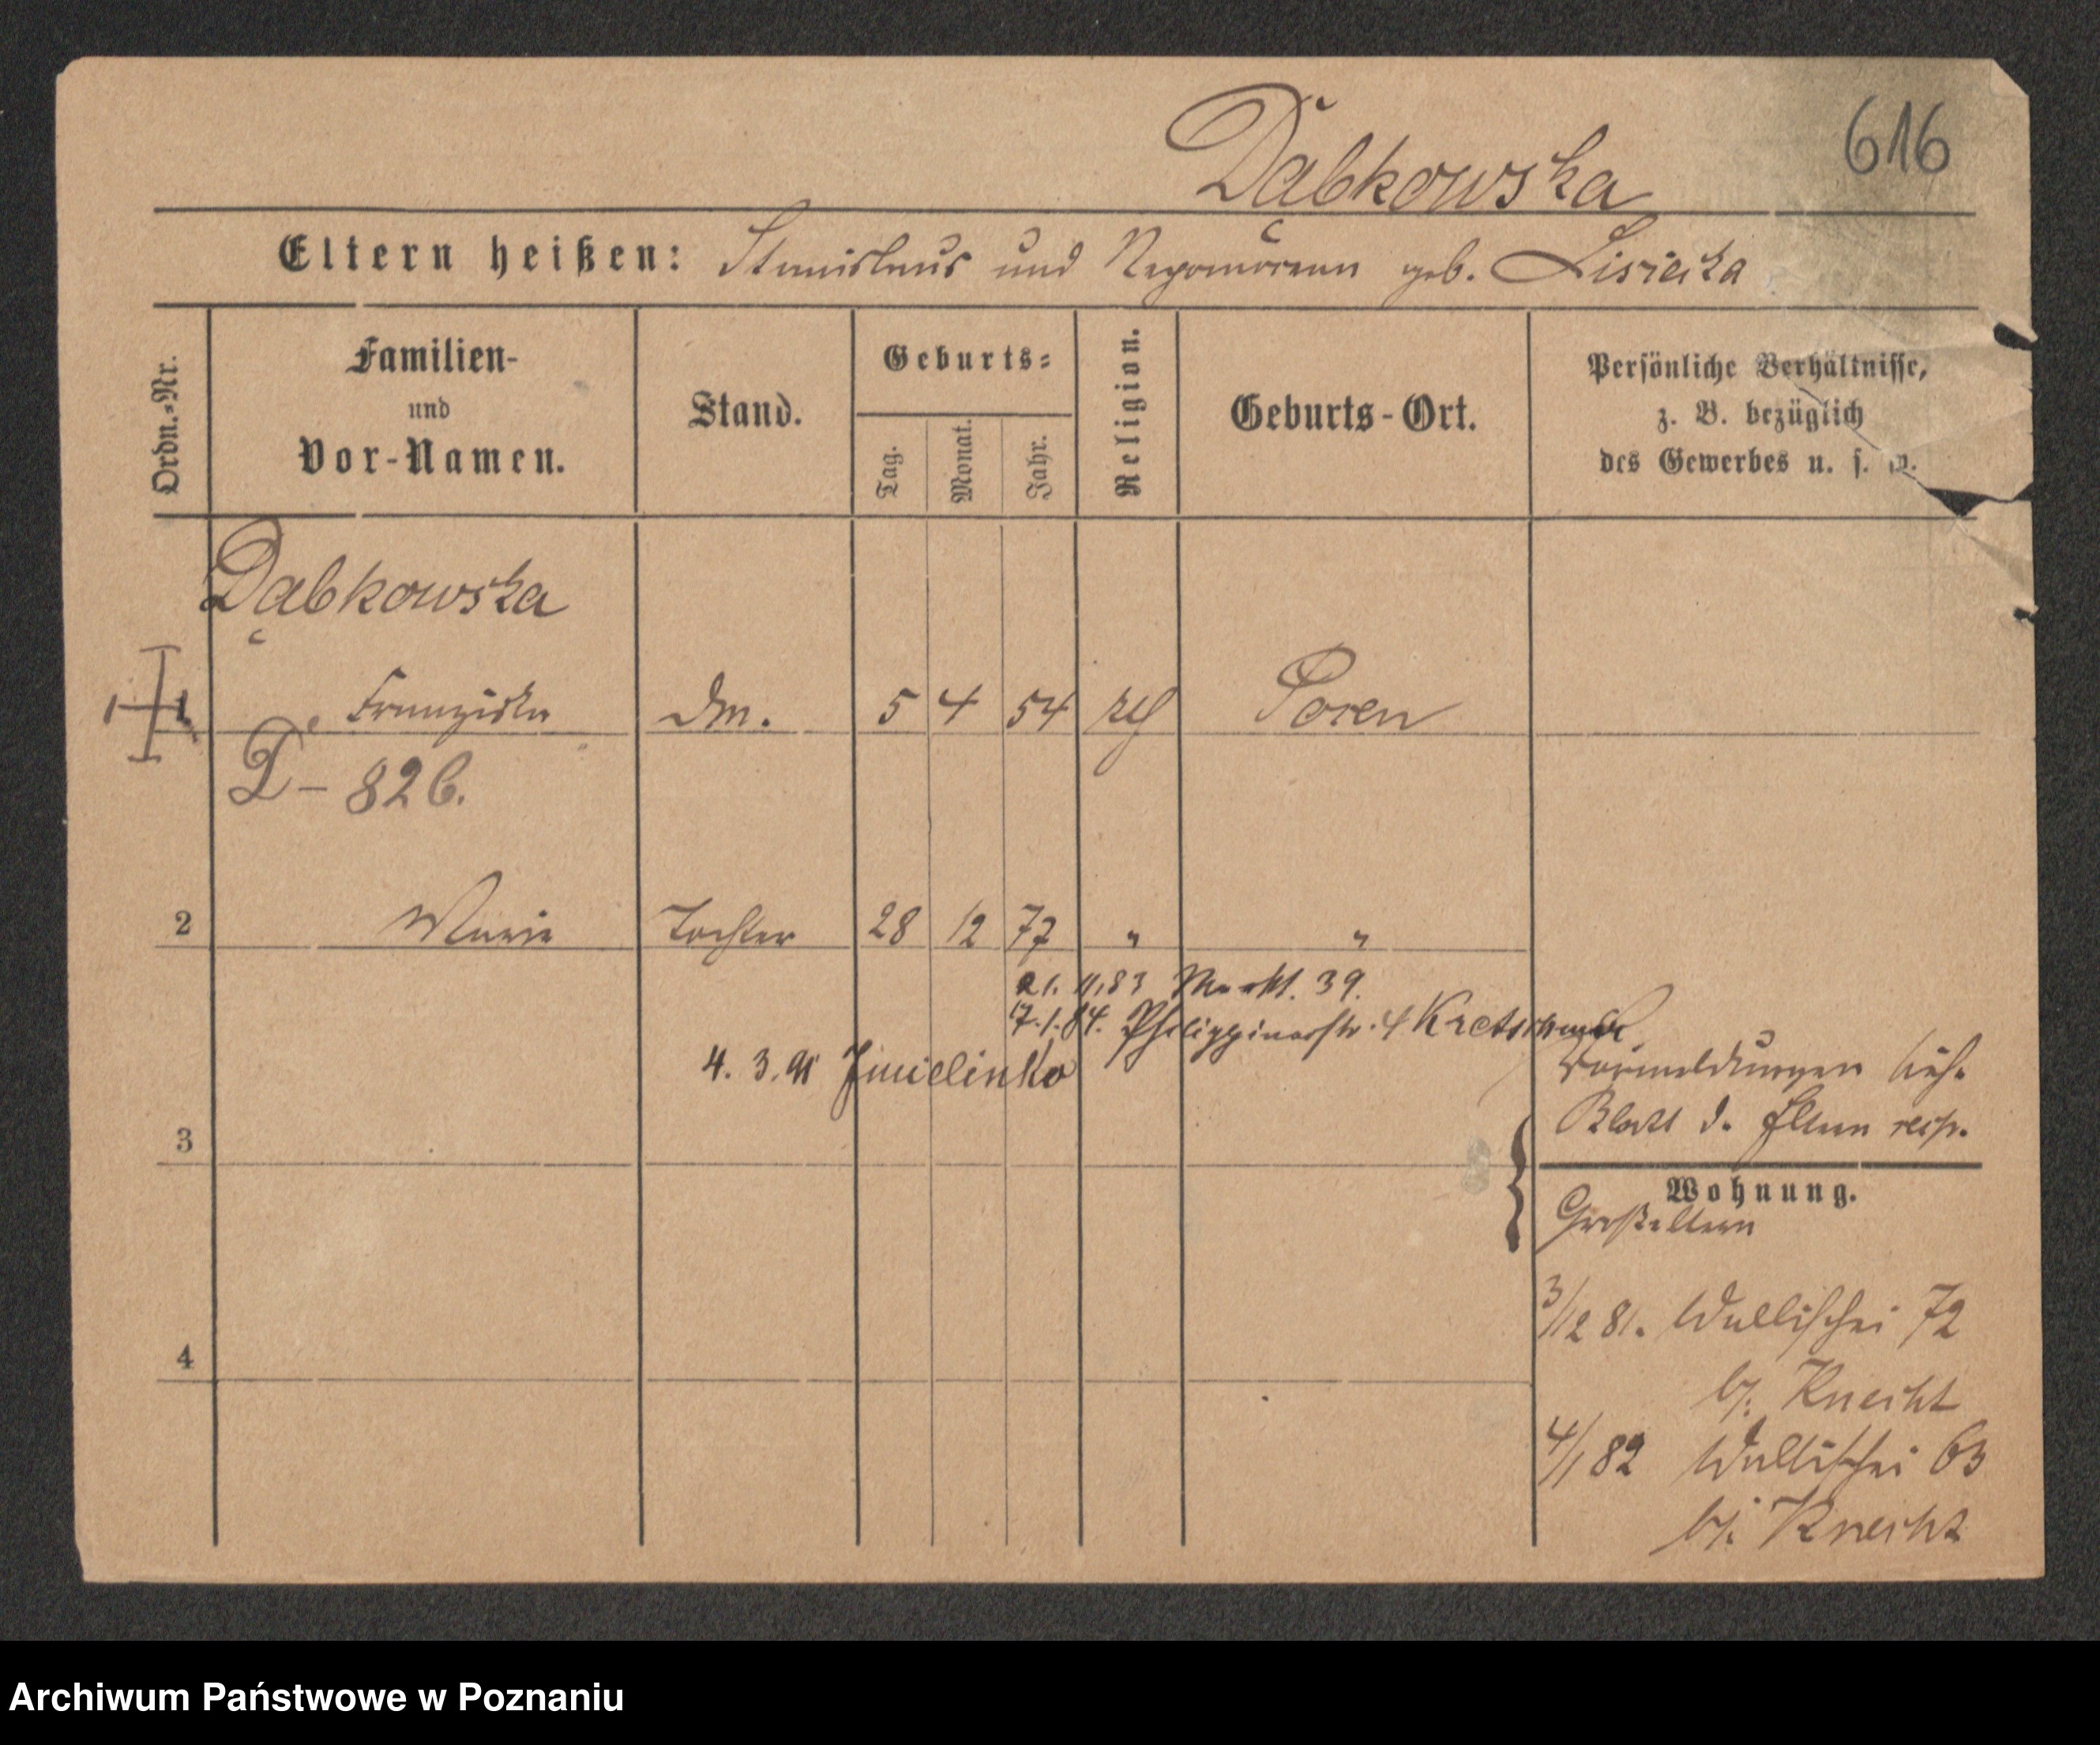 616
Dąbkowska
Eltern heißen: Stanislaus und Nepomucena geb. Lisiecka
Ordn.-Nr.
Familien-
und
Vor-Namen.
Stand.
Geburts-
Tag.
Monat.
Jahr.
Religion.
Geburts-Ort.
Persönliche Verhältnisse,
z. B. bezüglich
des Gewerbes u. s. w.
Dąbkowska
1 Franziska 5 4 54 Posen
D - 826.
2 Marie Tochter 28 12 77 " "
21. 11. 83 Markt. 39.
17. 1. 84. Philippinerstr. 4 Kretschmer
4. 3. 91 Imielinko
Vormeldungen
Blatt d. Eltern resp.
3
Wohnung.
Großeltern
3/12 81. Wallischei 72
b/. Knecht
4
4/1 82 Wallischei 63
b/. Knecht
Archiwum Państwowe w Poznaniu